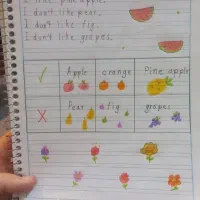 I like pine apple.
I don't like pear.
I don't like fig.
I don't like grapes.
Apple orange Pine apple
Pear fig grapes